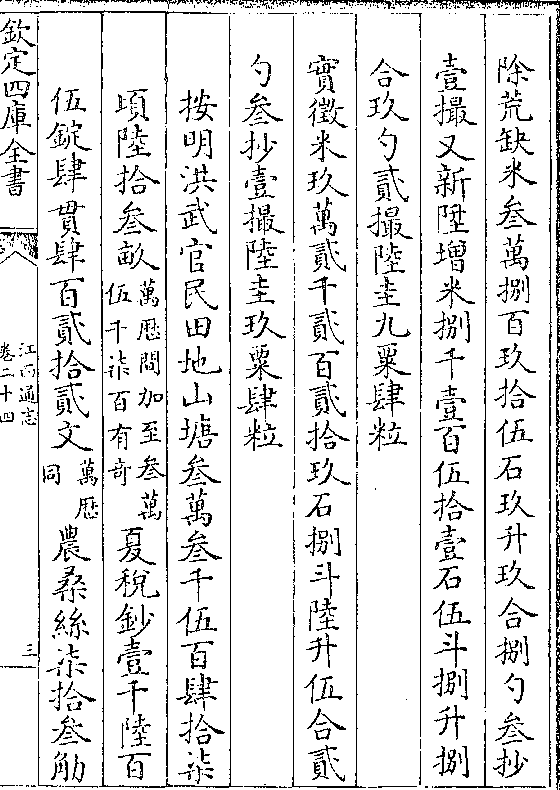 除荒缺米叁萬捌百玖拾伍石玖升玖合捌勺叁抄
壹撮又新陞增米捌千壹百伍拾壹石伍斗捌升捌
合玖勺貳撮陸圭九粟肆粒
實徵米玖萬貳千貳百貳拾玖石捌斗陸升伍合貳
勺叁抄壹撮陸圭玖粟肆粒
按明洪武官民田地山塘叁萬叁千伍百肆拾柒
頃陸拾叁畝萬厯間加至叁萬伍千柒百有奇夏稅鈔壹千陸百
伍錠肆貫肆百貳拾貳文萬厯同農桑絲柒拾叁觔
欽定四庫全書
江西通志
卷二十四
三